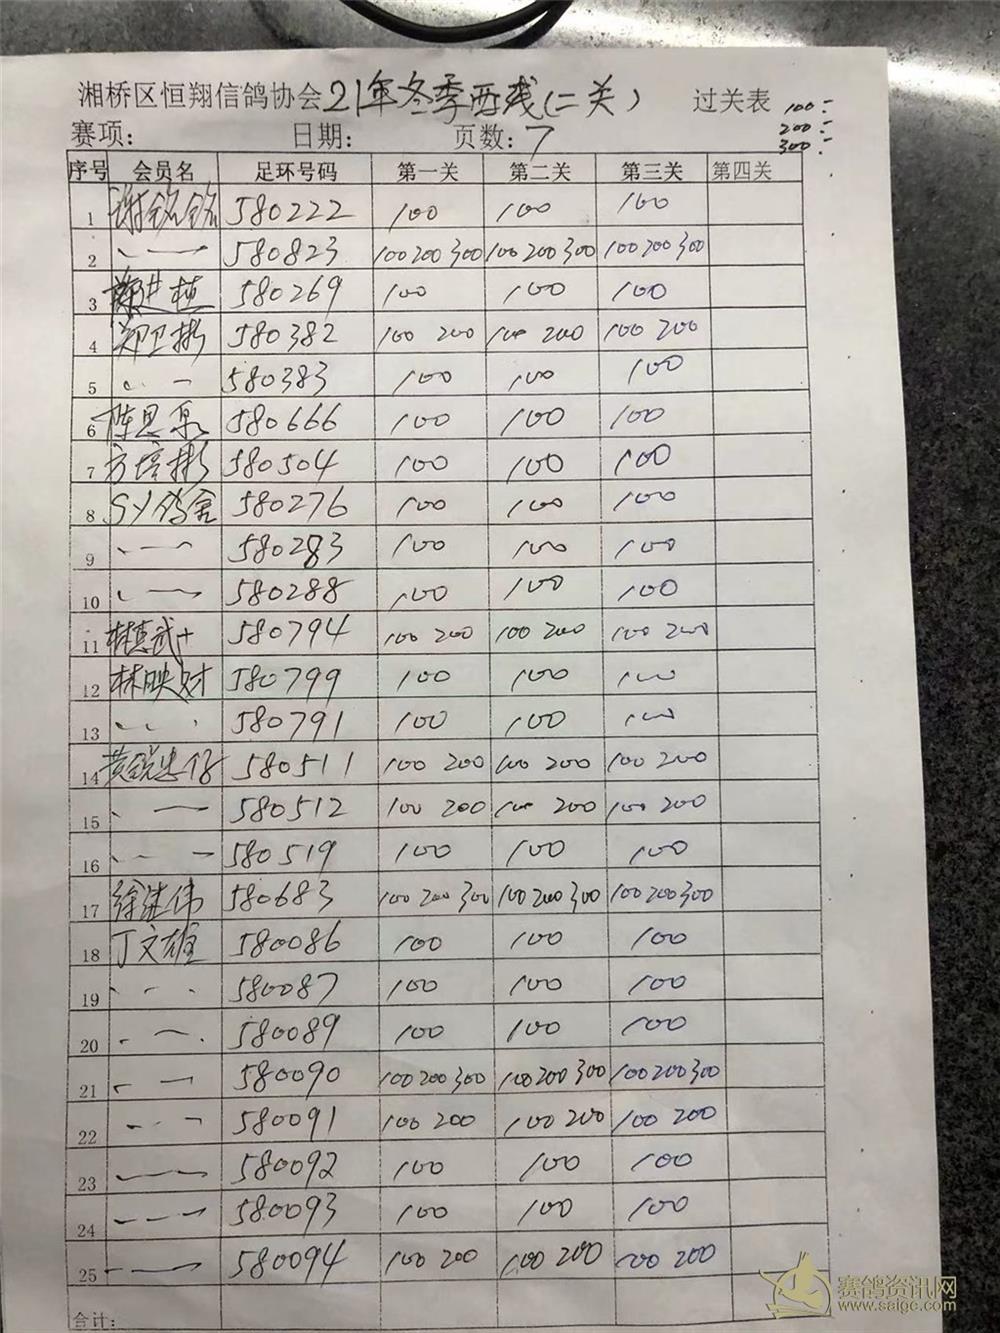 湘桥区恒翔信鸽协会21年冬季两残(二关) 过关表
100:
200:
300:
赛项: 日期: 页数: 7
序号 会员名 足环号码 第一关 第二关 第三关 第四关
1 谢铭铭 580222 100 100 100
2 580823 100 200 300 100 200 300 100 200 300
3 580269 100 100 100
4 郑卫彬 580382 100 200 100 200 100 200
5 580383 100 100 100
6 陈思泉 580666 100 100 100
7 方培彬 580504 100 100 100
8 SY鸽舍 580276 100 100 100
9 580283 100 100 100
10 580288 100 100 100
11 林惠武+ 580794 100 200 100 200 100 200
12 林映财 580799 100 100 100
13 580791 100 100 100
14 黄锐忠仔 580511 100 200 100 200 100 200
15 580512 100 200 100 200 100 200
16 580519 100 100 100
17 徐继伟 580683 100 200 300 100 200 300 100 200 300
18 丁文雄 580086 100 100 100
19 580087 100 100 100
20 580089 100 100 100
21 580090 100 200 300 100 200 300 100 200 300
22 580091 100 200 100 200 100 200
23 580092 100 100 100
24 580093 100 100 100
25 580094 100 200 100 200 100 200
合计:
赛鸽资讯网
www.saigc.com